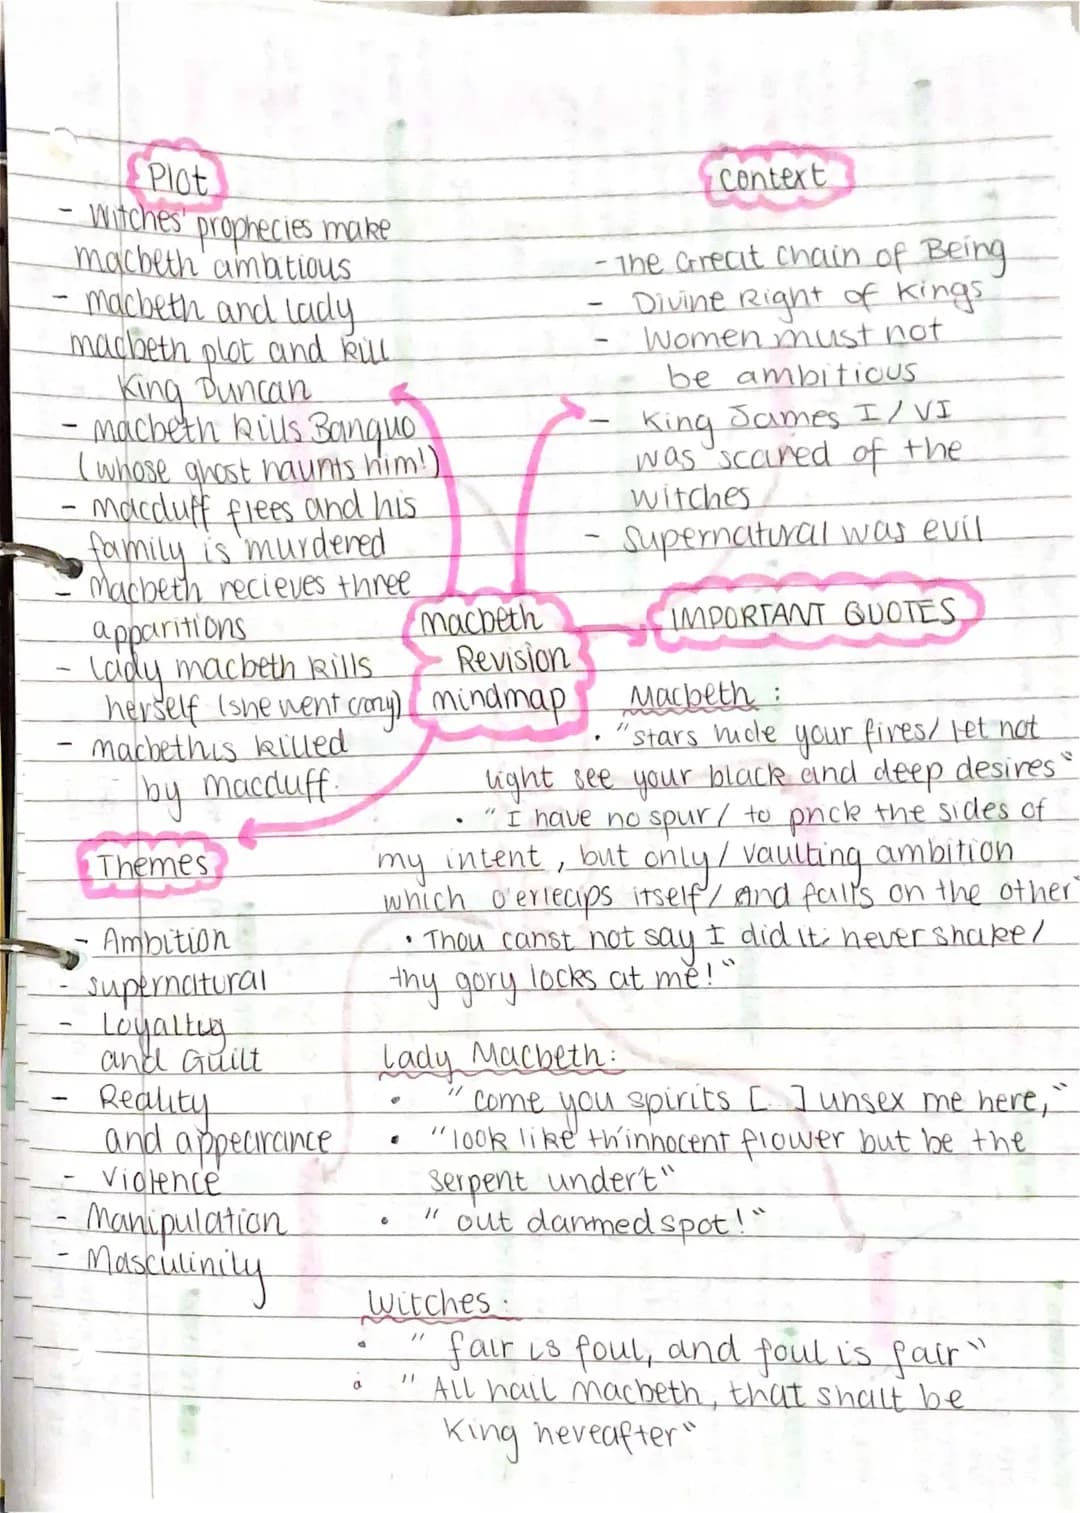 Plot
- Witches' prophecies make
macbeth ambatious
- macbeth and lady
macbeth plot and kill
King Duncan
- macbeth kills Banquo
(whose ghost haunts him!)
- macduff flees and his
family is murdered
- Macbeth recieves three
apparitions
- lady macbeth kills
herself (she went crazy)
- macbeth is killed
by macduff.
Context
- The Great Chain of Being
- Divine Right of Kings
- Women must not
be ambitious
- King James I/VI
was scared of the
witches
- Supernatural was evil
macbeth
Revision
mindmap
IMPORTANT QUOTES
Macbeth :
• "stars hide your fires/ let not
light see your black and deep desires"
• "I have no spur/ to prick the sides of
my intent, but only/ vaulting ambition
which o'erleaps itself/ and falls on the other"
• Thou canst not say I did it: never shake/
thy gory locks at me!"
Lady Macbeth:
• "come you spirits [...] unsex me here,"
• "look like th'innocent flower but be the
serpent undert"
• "out danmed spot!"
Witches :
• "fair is foul, and foul is fair"
• "All hail macbeth, that shalt be
King hereafter"
Themes
- Ambition
- supernatural
- Loyalty
and Guilt
- Reality
and appearance
- violence
- Manipulation
- Masculinity